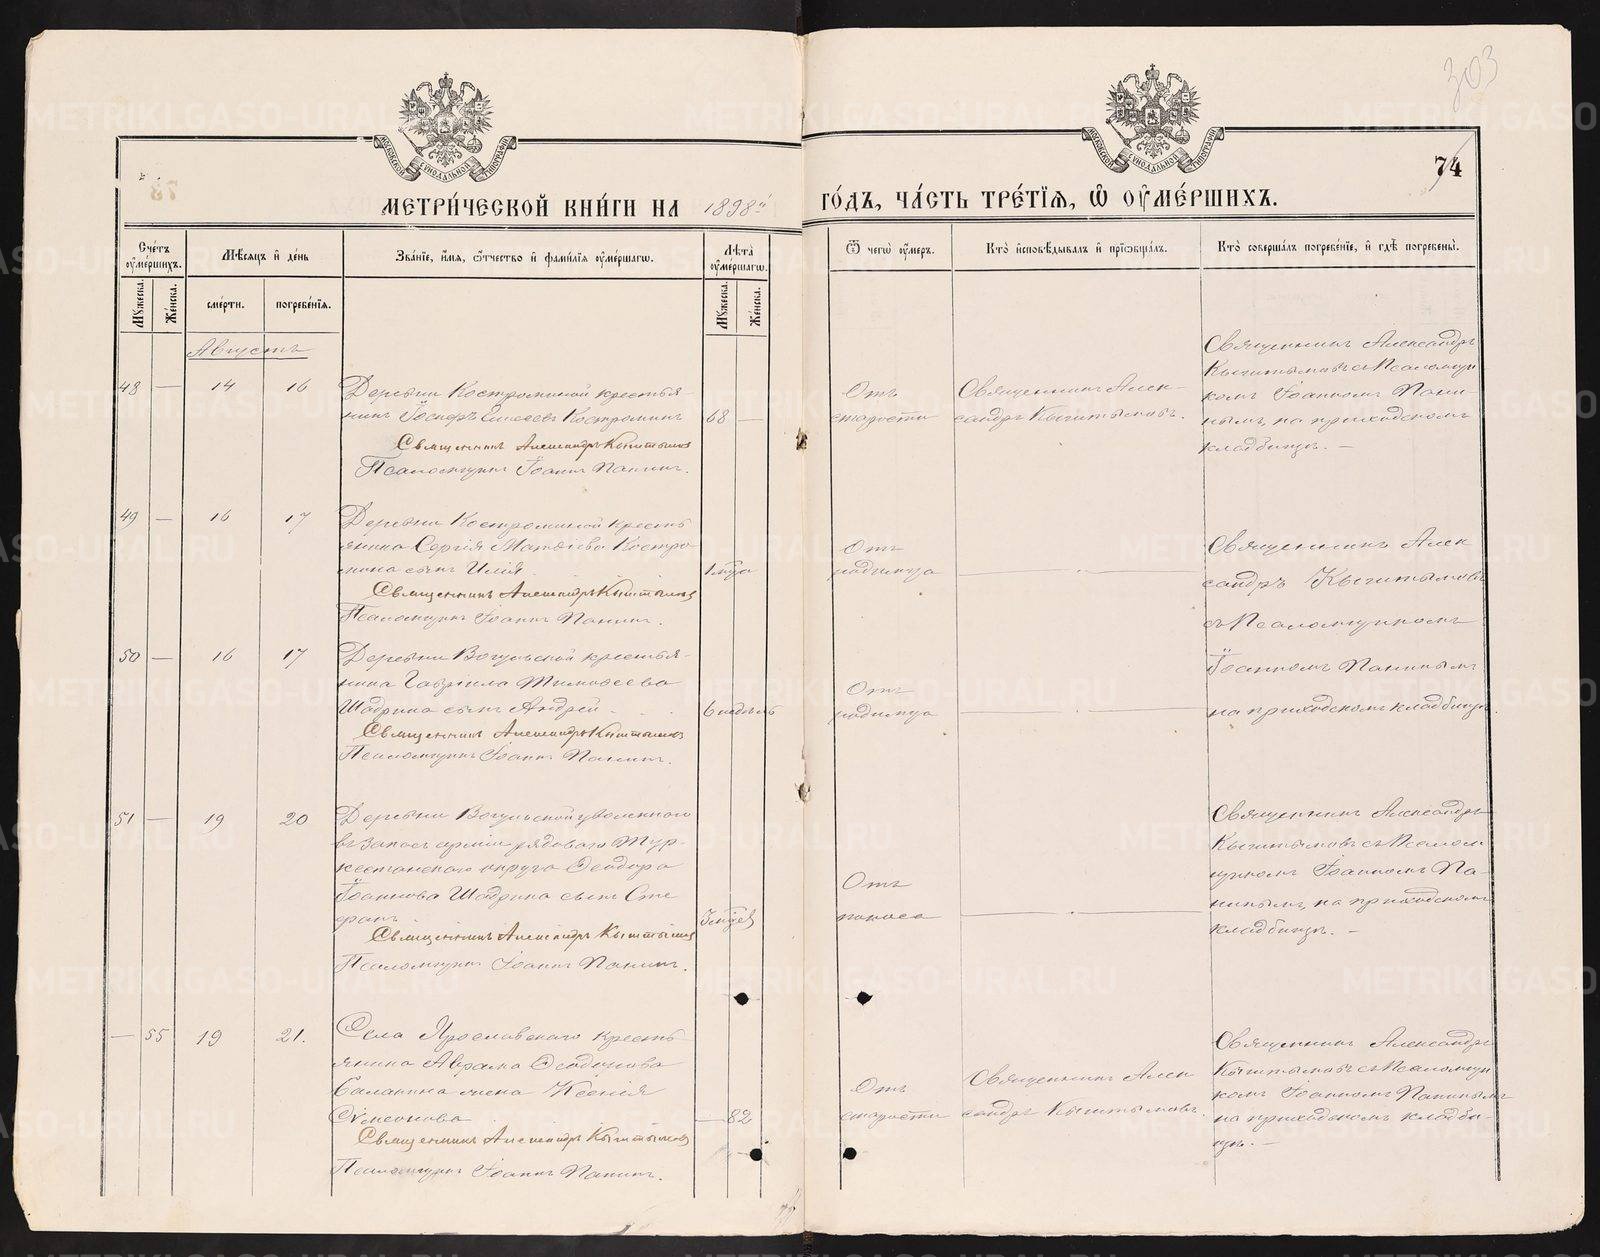 303
74
МЕТРИ́ЧЕСКОЙ КНИ́ГИ НА 1898й
ГО́ДЪ, ЧА́СТЬ ТРЕ́ТІѦ, Ѡ҆ ОУ҆МЕ́РШИХЪ.
МОСКОВСКОЙ СѴНОДАЛЬНОЙ ТИПОГРАФІИ
МОСКОВСКОЙ СѴНОДАЛЬНОЙ ТИПОГРАФІИ
Сче́тъ оу҆ме́ршихъ.
Мꙋжеска.
Же́нска.
Мѣ́сѧцъ и҆ де́нь
сме́рти.
погребе́нїѧ.
Зва́нїе, и҆́мѧ, ѻ҆́тчество и҆ фами́лїѧ оу҆ме́ршагѡ.
Лѣ́та оу҆ме́ршагѡ.
Мꙋжеска.
Же́нска.
Ѿ чегѡ̀ оу҆́меръ.
Кто̀ и҆сповѣ́дывалъ и҆ прїѡбща́лъ.
Кто̀ соверша́лъ погребе́нїе, и҆ гдѣ̀ погребены̀.
Августъ
48 — 14 16
Деревни Костроминой крестья-
нинъ Іосифъ Елисеевъ Костроминъ
68 —
Священникъ Александръ Кыштымовъ
Псаломщикъ Іоаннъ Панинъ.
Отъ
старости
Священникъ Алек-
сандръ Кыштымовъ.
Священникъ Александръ
Кыштымовъ съ Псаломщи-
комъ Іоанномъ Пани-
нымъ, на приходскомъ
кладбищѣ. —
49 — 16 17
Деревни Костроминой кресть
янина Сергія Матвіева Костро-
мина сынъ Илія
1 мца
Священникъ Александръ Кыштымовъ
Псаломщикъ Іоаннъ Панинъ.
Отъ
родимца
Священникъ Алек
сандръ Кыштымовъ
съ Псаломщикомъ
Іоанномъ Панинымъ
на приходскомъ кладбищѣ.
50 — 16 17
Деревни Вогульской крестья-
нина Гавриила Тимофеева
Шадрина сынъ Андрей
6 недѣль
Священникъ Александръ Кыштымовъ
Псаломщикъ Іоаннъ Панинъ.
Отъ
родимца
51 — 19 20
Деревни Вогульской уволеннаго
въ запасъ арміи рядоваго Тур-
кестанскаго округа Ѳеодора
Іоаннова Шадрина сынъ Сте
фанъ
3 мцев
Священникъ Александръ Кыштымовъ
Псаломщикъ Іоаннъ Панинъ.
Отъ
поноса
Священникъ Александръ
Кыштымовъ съ Псалом
щикомъ Іоанномъ Па-
нинымъ, на приходскомъ
кладбищѣ. —
— 55 19 21.
Села Ярославскаго кресть
янина Аврама Ѳеод
Балакина жена Ксенія
Сѵмеонова
— 82
Священникъ Александръ Кыштымовъ
Псаломщикъ Іоаннъ Панинъ.
Отъ
старости
Священникъ Алек
сандръ Кыштымовъ.
Священникъ Александръ
Кыштымовъ съ Псаломщи
комъ Іоанномъ Панинымъ
на приходскомъ кладби-
щѣ. —
METRIKI.GASO-URAL.RU